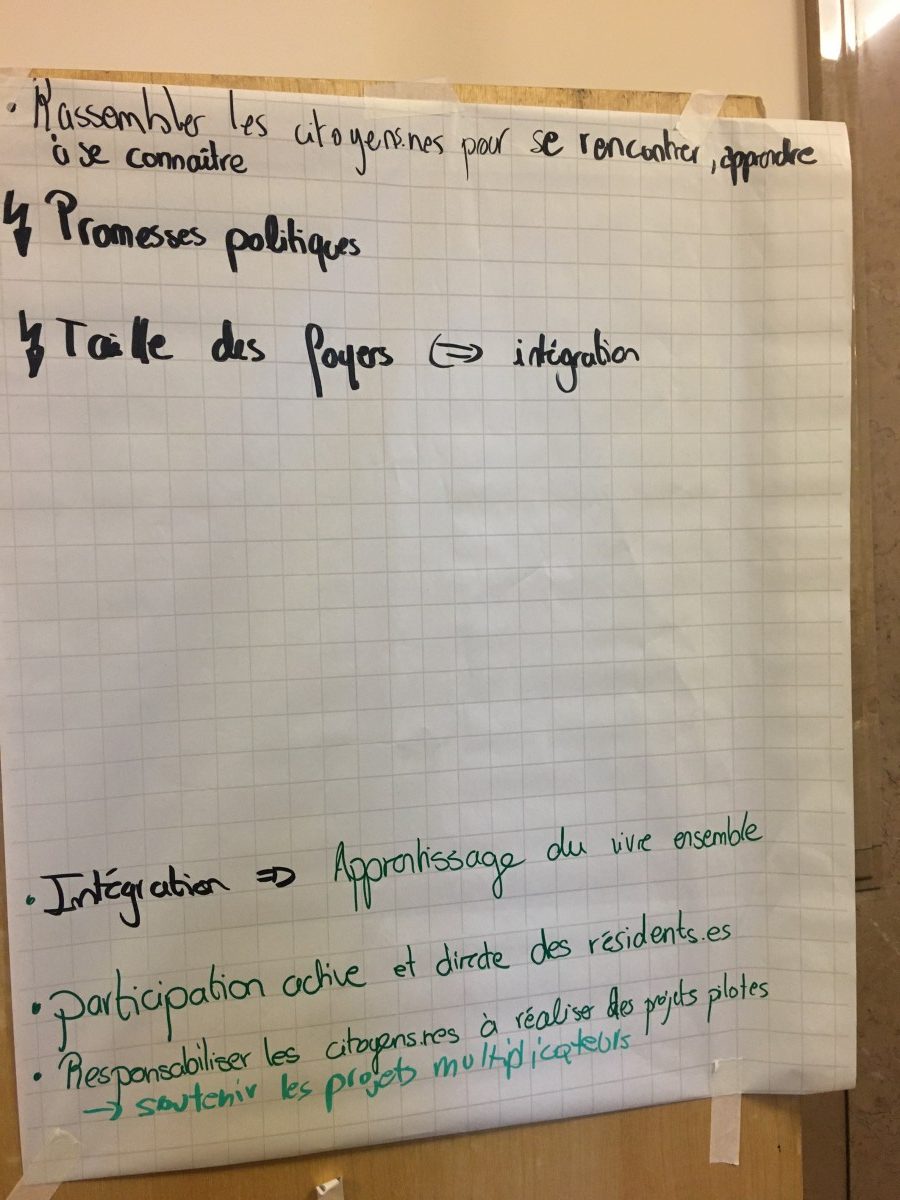 • Rassembler les citoyens.nes pour se rencontrer, apprendre
à se connaître
↯ Promesses politiques
↯ Taille des foyers <=> intégration
• Intégration => Apprentissage du vivre ensemble
• participation active et directe des résidents.es
• Responsabiliser les citoyens.nes à réaliser des projets pilotes
→ soutenir les projets multiplicateurs